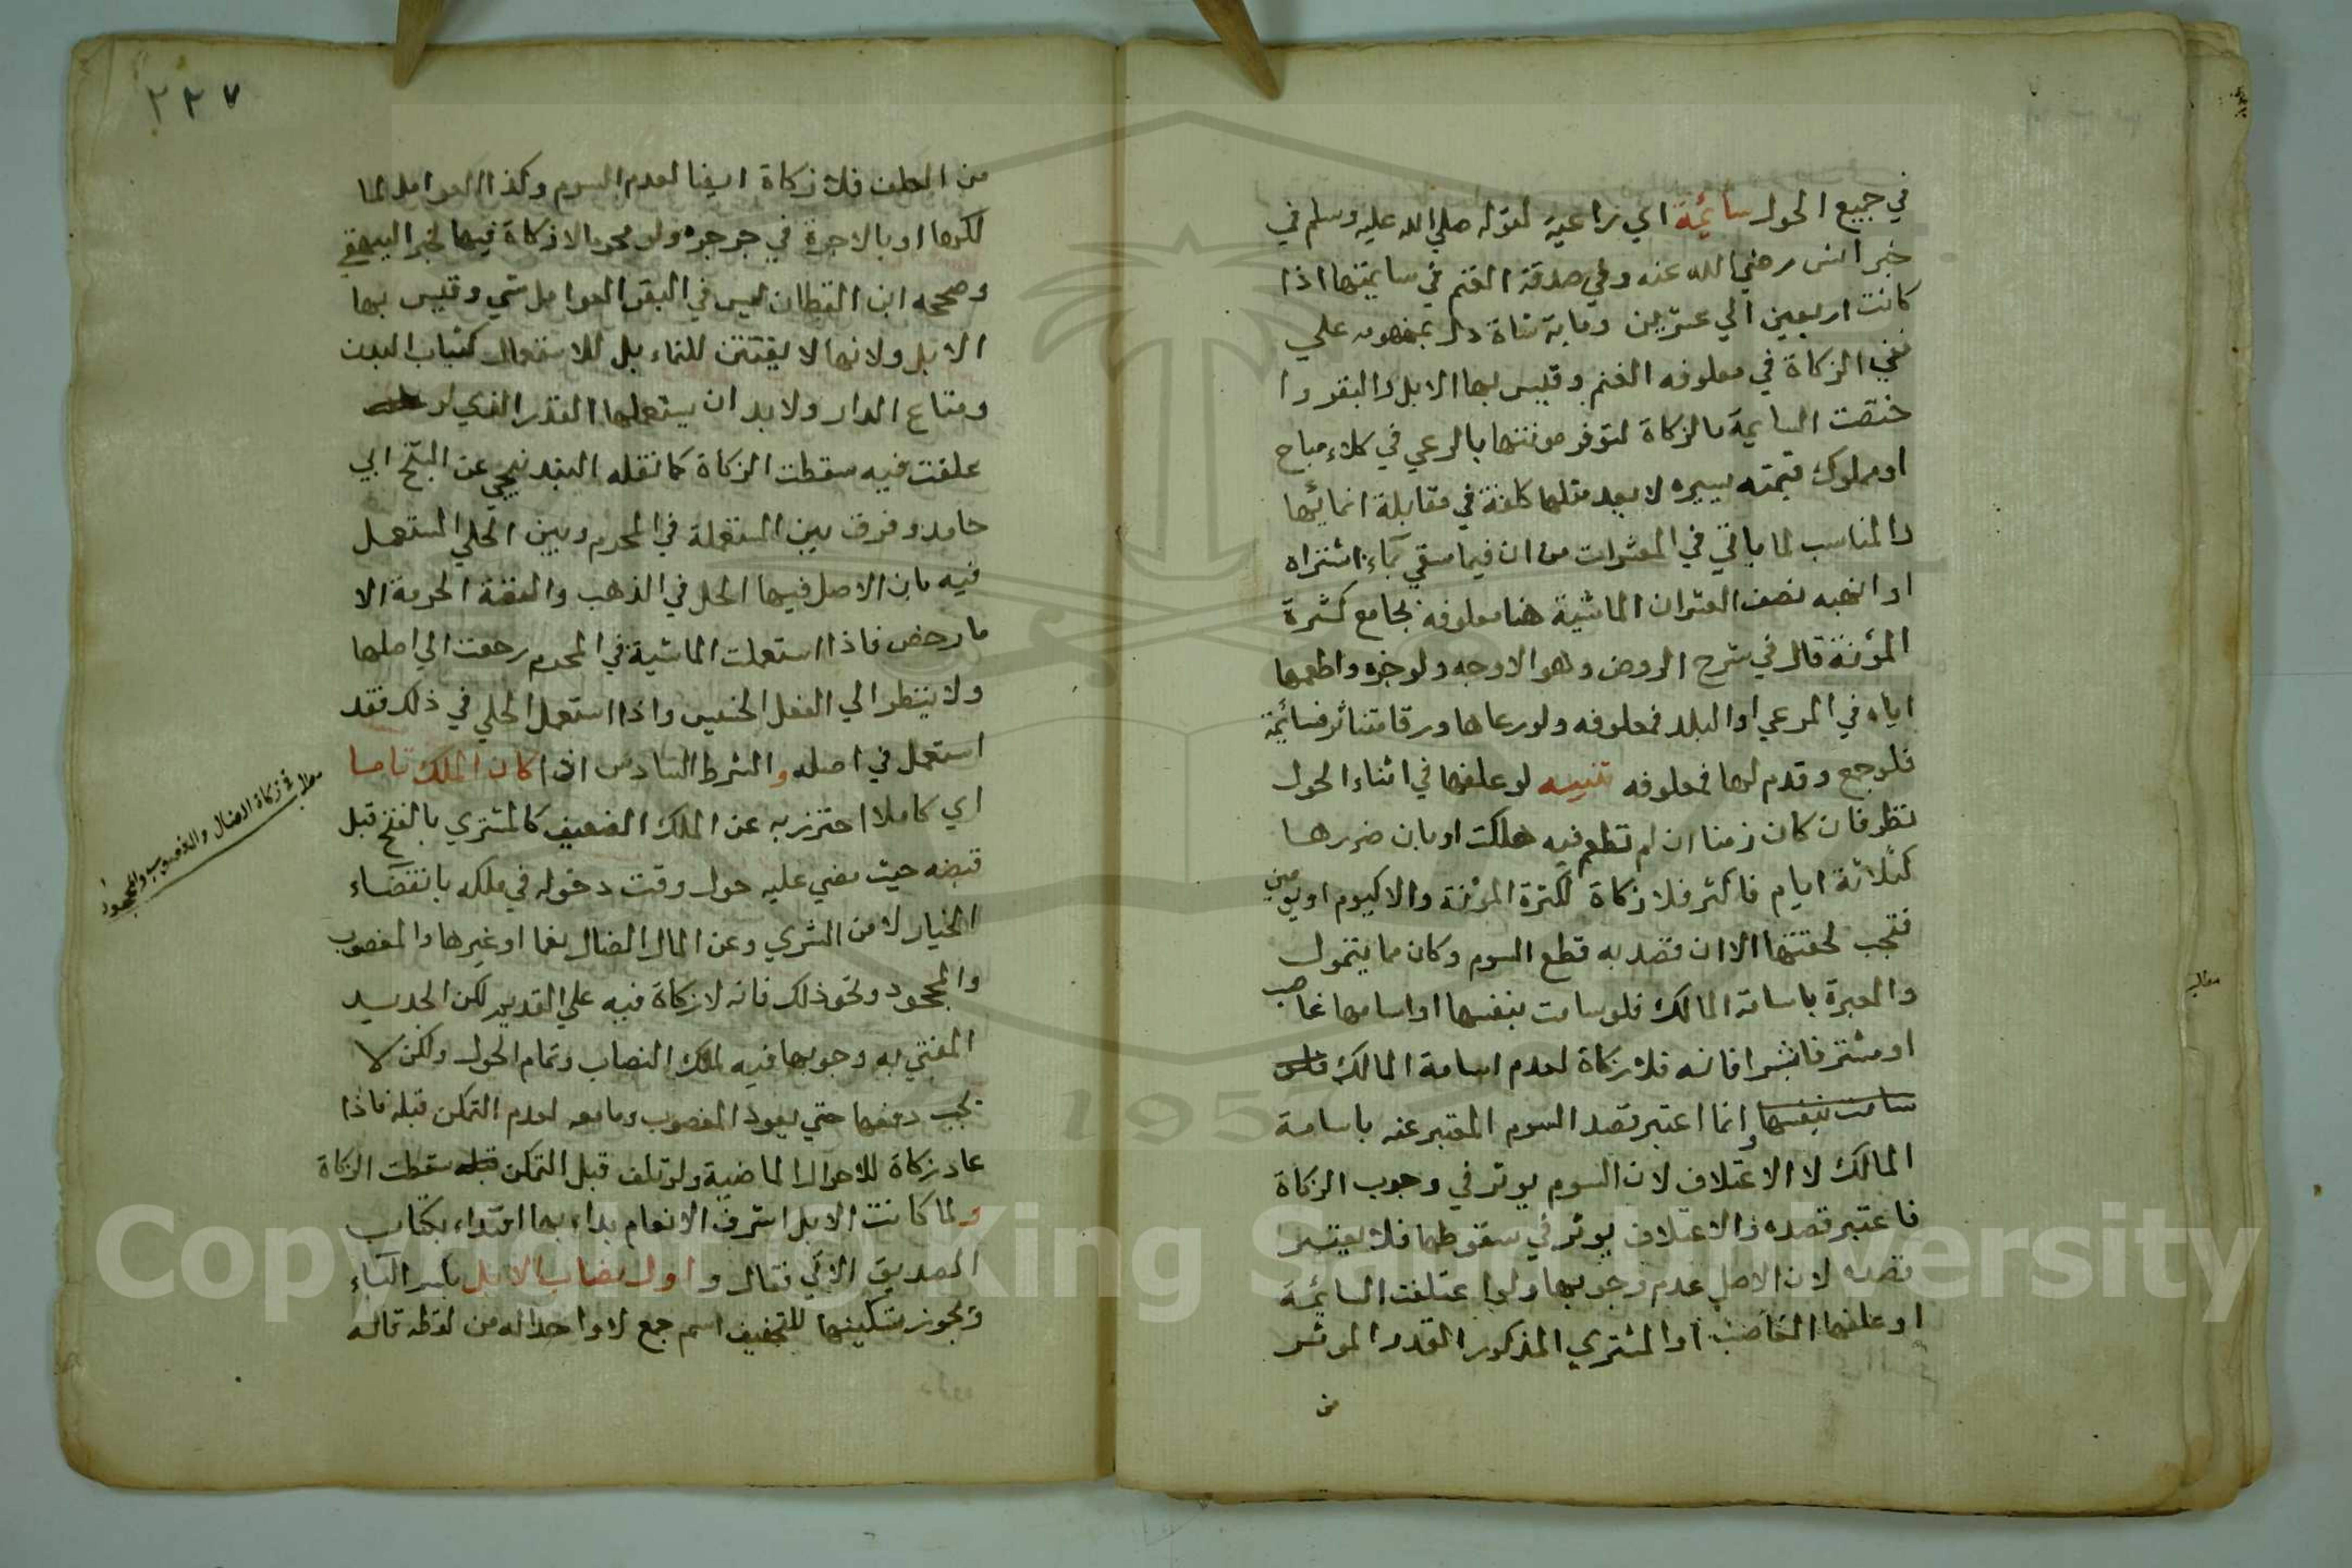 في جميع الحول سائمة اي راعية لقوله صلي الله عليه وسلم في
خبر انس رضي الله عنه وفي صدقة الغنم في سايمتها اذا
كانت اربعين الي عشرين ومايه شاة دل بمفهومه علي
نفي الزكاة في معلوفه الغنم وقيس بها الابل والبقر وا
ختصت السايمة بالزكاة لتوفر مونتها بالرعي في كلاء مباح
او مملوك قيمته يسيره لا يعد مثلها كلفة في مقابلة انمائها
والمناسب لما ياتي في المعشرات من ان فيما سقي بماء اشتراه
او اتهبه نصف العشر ان الماشية هنا معلوفه بجامع كثرة
المؤنة قال في شرح الروض وهو الاوجه ولو جزه واطعمها
اياه في المرعي او البلد فمعلوفه ولو رعاها ورقا متناثر فسائمة
فلو جمع وقدم لها فمعلوفه تنبيه لو علفها في اثناء الحول
نظر فان كان زمنا ان لم تطعم فيه هلكت او بان ضررها
كثلاثة ايام فاكثر فلا زكاة لكثرة المؤنة والا كيوم او يومين
فتجب لخفتها الا ان قصد به قطع السوم وكان مما يتمول
والعبرة باسامة المالك فلو سامت بنفسها او اسامها غاصب
او مشتر فاشرا فاسد فلا زكاة لعدم اسامة المالك فلو
سامت بنفسها وانما اعتبر قصد السوم المعتبر عنه باسامة
المالك لا الاعتلاف لان السوم يوثر في وجوب الزكاة
فاعتبر قصده والاعتلاف يوثر في سقوطها فلا يعتبر
قصده لان الاصل عدم وجوبها ولو اعتلفت السائمة
او علفها الغاصب او المشتري المذكور القدر الموثر
من
٢٢٧
من العلف فلا زكاة ايضا لعدم السوم وكذا العوامل لما
لكها او بالاجرة في حرث ونحوه ولو محرما لا زكاة فيها لخبر البيهقي
وصححه ابن القطان ليس في البقر العوامل شي وقيس بها
الابل ولانها لا تقتني للنماء بل للاستعمال كثياب البدن
ومتاع الدار ولا بد ان يستعملها القدر الذي لو
علفت فيه سقطت الزكاة كما نقله البندنيجي عن الشيخ ابي
حامد وفرق بين المستعملة في المحرم وبين الحلي المستعمل
فيه بان الاصل فيها الحل في الذهب والفضة الحرمة الا
ما رخص فاذا استعملت الماشية في المحرم رجعت الي اصلها
ولا ينظر الي الفعل الخسيس واذا استعمل الحلي في ذلك فقد
استعمل في اصله والشرط السادس اذا كان الملك تاما
اي كاملا احترز به عن الملك الضعيف كالمشتري بالفتح قبل
قبضه حيث مضي عليه حول وقت دخوله في ملكه بانقضاء
الخيار لا من الشري وعن المال الضال نعما او غيرها والمغصوب
والمجحود ونحو ذلك فانه لا زكاة فيه علي القديم لكن الجديد
المفتي به وجوبها فيه لملك النصاب وتمام الحول ولكن لا
تجب دفعها حتي يعود المغصوب وما معه لعدم التمكن قبله فاذا
عاد زكاة للاحوال الماضية ولو تلف قبل التمكن قبله سقطت الزكاة
ولما كانت الابل اشرف الانعام بداء بها اقتداء بكتاب
الصديق الاتي فقال واول نصاب الابل بكسر الباء
ويجوز تسكينها للتخفيف اسم جمع لا واحد له من لفظه قاله
مطلب في زكاة الضال والمغصوب والمجحود
مطلب
Copyright © King Saud University
1957